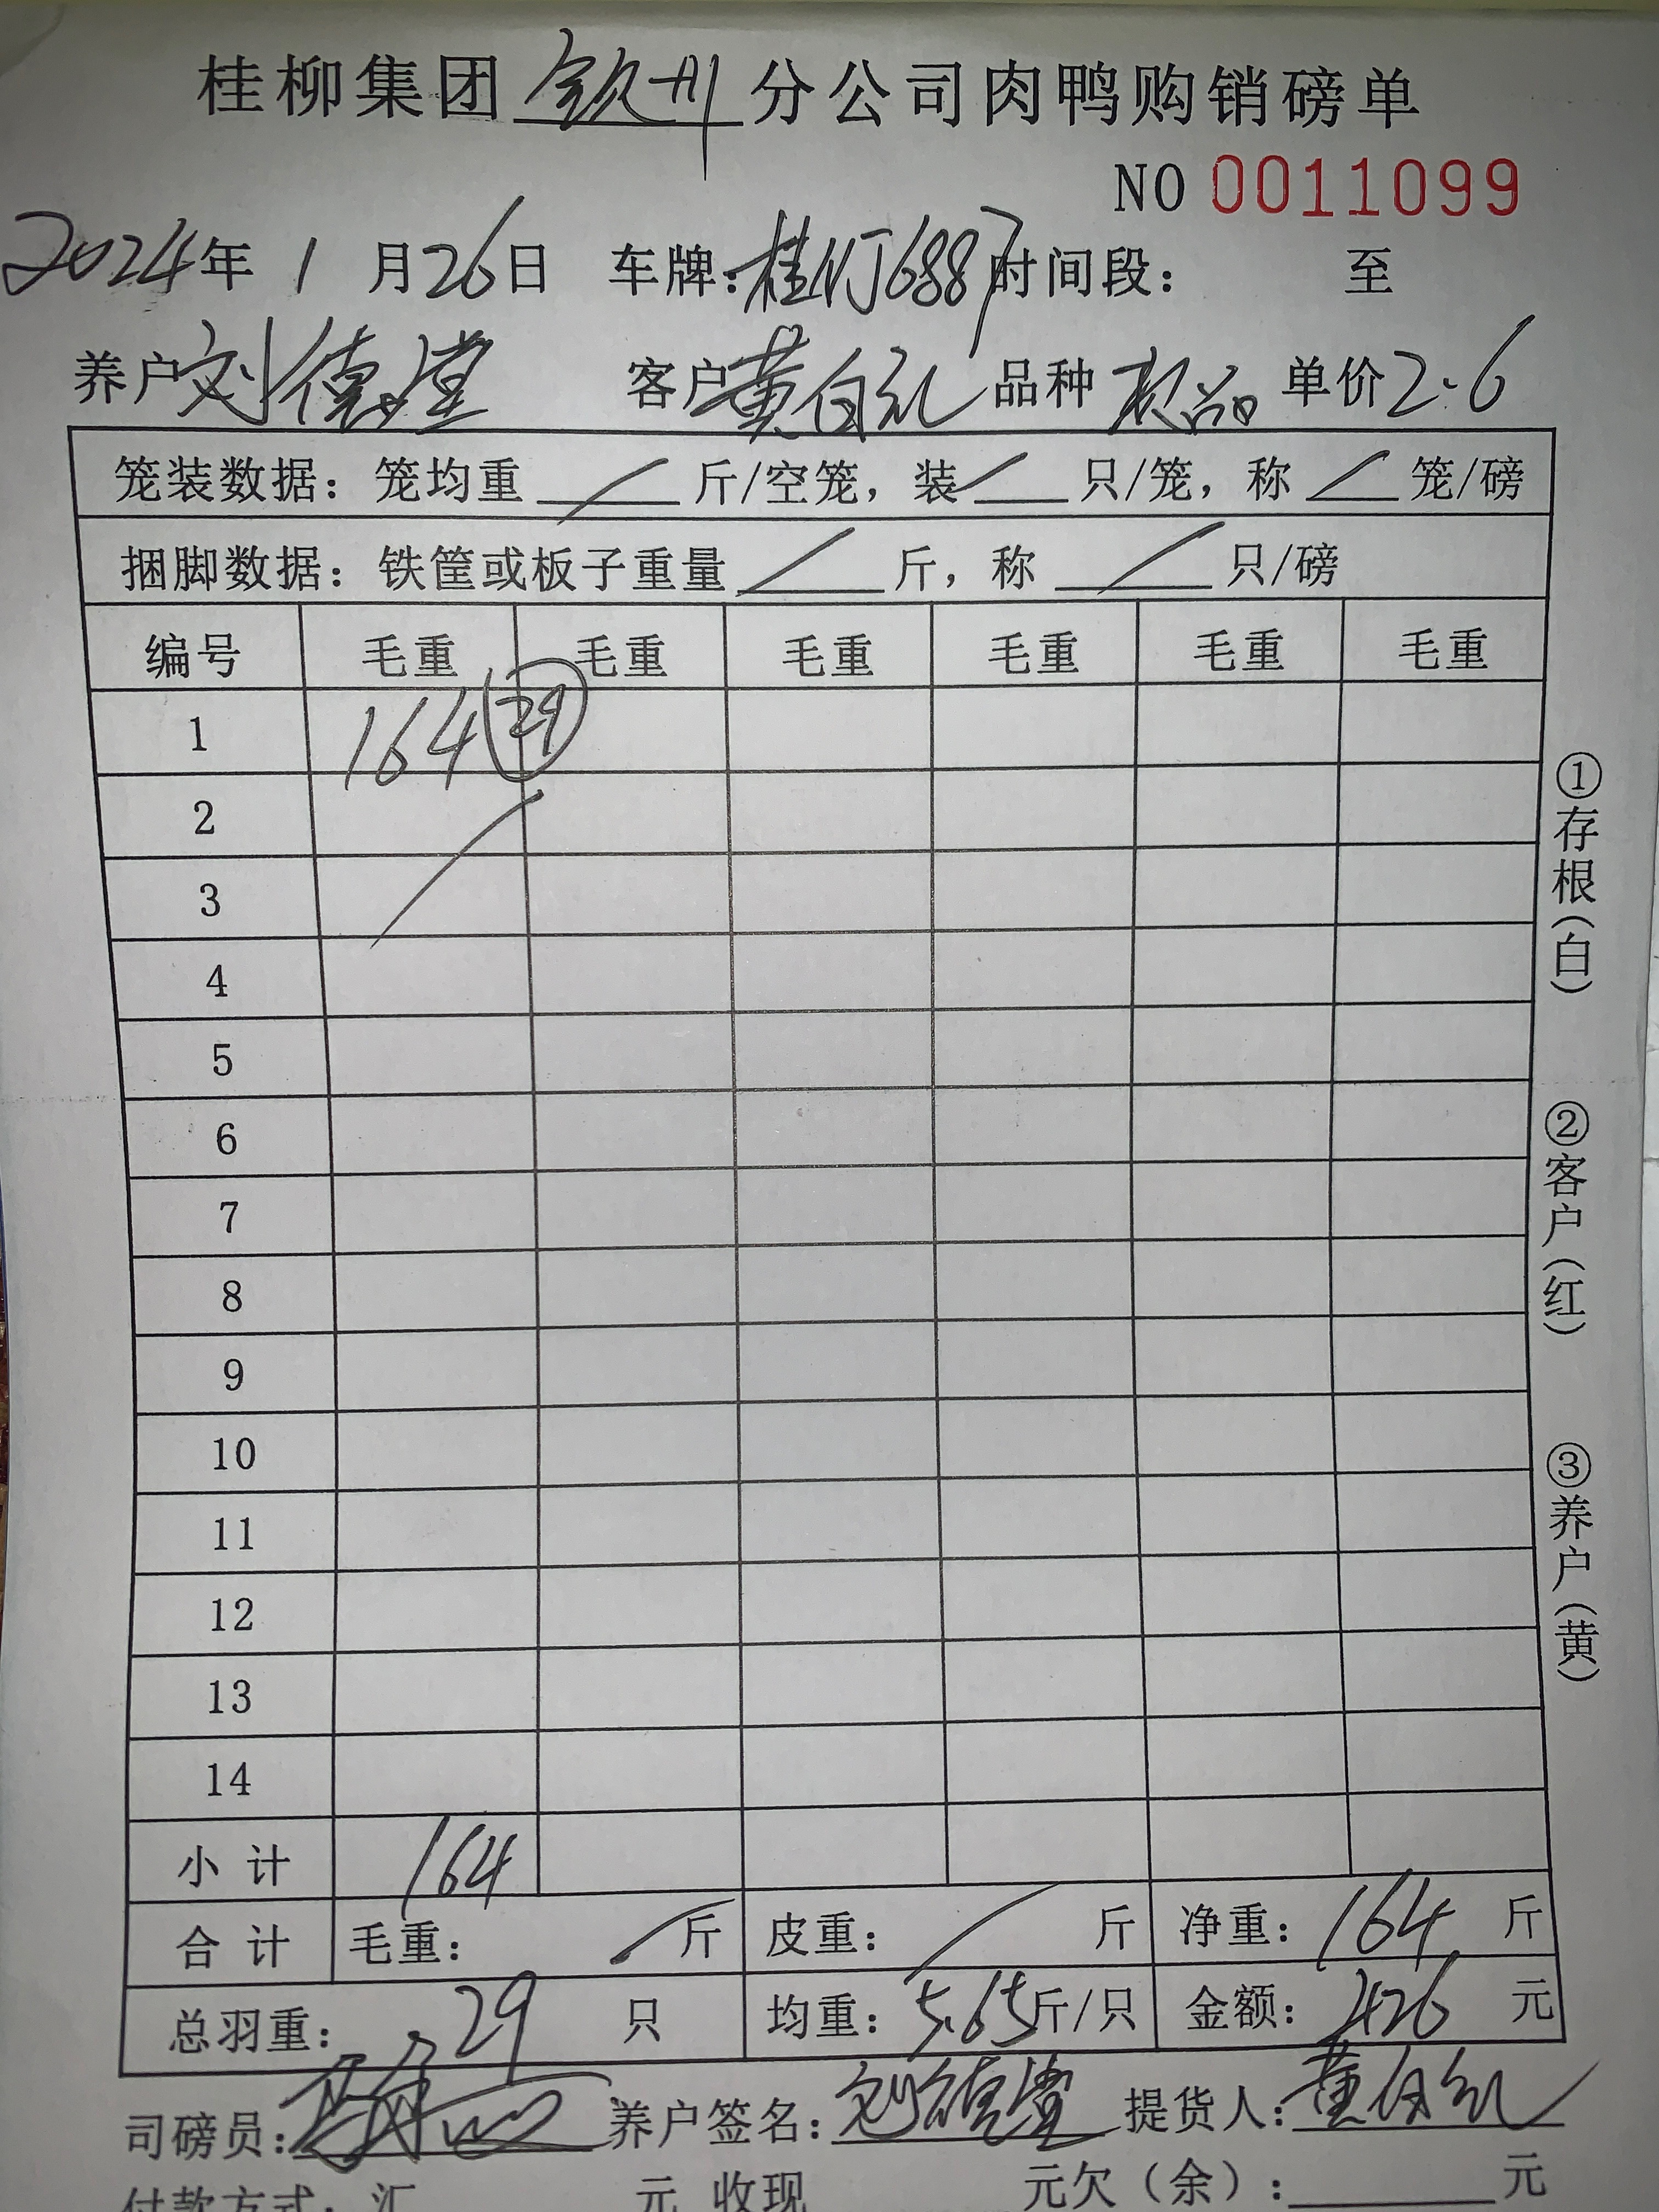 桂柳集团钦州分公司肉鸭购销磅单
NO 0011099
2024年1月26日 车牌: 桂 6887 时间段: 至
养户 刘德堂 客户 黄 品种 次品 单价 2.6
笼装数据: 笼均重 / 斤/空笼, 装 / 只/笼, 称 / 笼/磅
捆脚数据: 铁筐或板子重量 / 斤, 称 / 只/磅
编号 毛重 毛重 毛重 毛重 毛重 毛重
1 164 29
2
3
4
5
6
7
8
9
10
11
12
13
14
小计 164
合计 毛重: / 斤 皮重: / 斤 净重: 164 斤
总羽重: 29 只 均重: 5.65 斤/只 金额: 426 元
司磅员: 养户签名: 刘德堂 提货人: 黄
付款方式: 汇 元 收现 元欠(余): 元
①存根(白)
②客户(红)
③养户(黄)